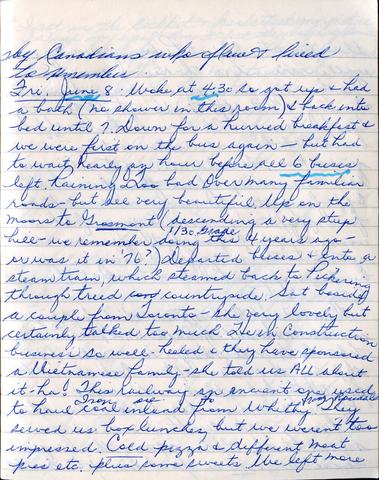 by Canadians who flew & lived
to remember.
Fri. June 8. Woke at 4:30 so got up & had
a bath (no shower in this room) & back into
bed until 7. Down for a hurried breakfast &
we were first on the bus again - but had
to wait nearly an hour before all 6 buses
left. Raining too bad over many familiar
roads - but all very beautiful up on the
moors to Grosmont (descending a very steep
1/30 grade
hill - we remember doing this 4 years ago -
or was it in '76?) Departed buses & onto a
steam train, which steamed back to Pickering
through treed countryside. Sat beside
a couple from Toronto - she very lovely but
certainly talked too much. In Construction
business so well-heeled & they have sponsored
a Vietnamese family - she told us ALL about
it - ha! This railway an ancient one used
Iron ore to from Rosedale
to haul coal inland from Whitby. They
served us box lunches, but we weren't too
impressed. Cold pizza & different meat
pies etc. plus some sweets. We left more